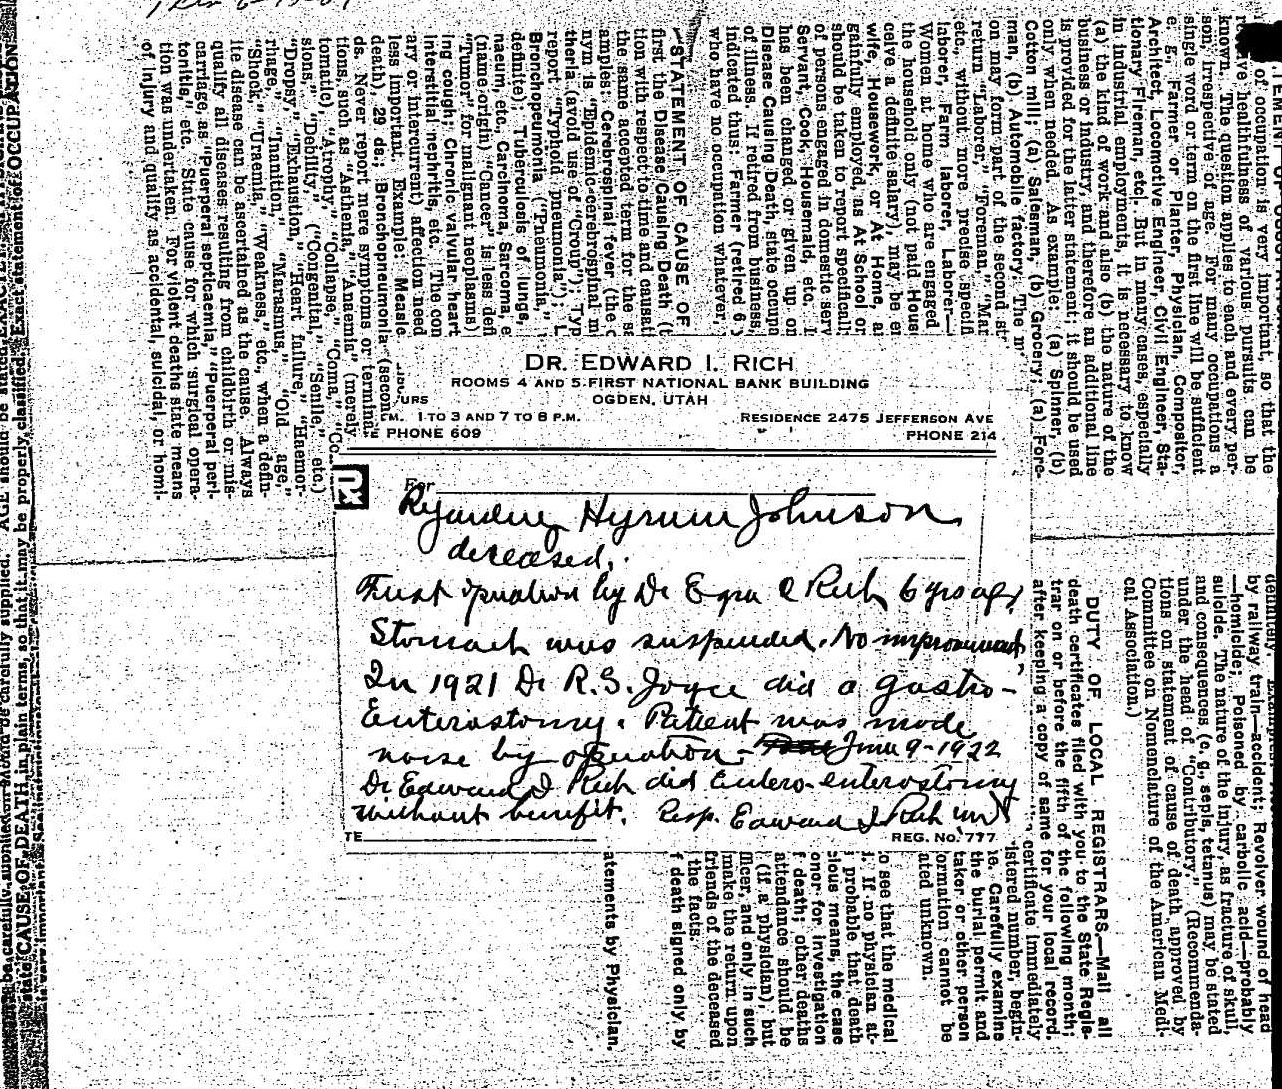 of occupation is very important, so that the
healthfulness of various pursuits can be
known. The question applies to each and every per-
son, irrespective of age. For many occupations a
single word or term on the first line will be sufficient
e. g., Farmer or Planter, Physician, Compositor,
Architect, Locomotive Engineer, Civil Engineer, Sta-
tionary Fireman, etc. But in many cases, especially
in industrial employments, it is necessary to know
(a) the kind of work and also (b) the nature of the
business or industry, and therefore an additional line
is provided for the latter statement; it should be used
only when needed. As example: (a) Spinner, (b)
Cotton mill; (a) Salesman, (b) Grocery; (a) Fore-
man, (b) Automobile factory. The
on may form part of the second
return "Laborer," "Foreman,"
etc., without more precise
laborer, Farm laborer, Laborer—
Women at home who are engaged
the household only (not paid
ceive a definite salary), may be
wife, Housework, or At Home,
gainfully employed, as At School or
should be taken to report
of persons engaged in domestic
Servant, Cook, Housemaid, etc.
has been changed or given up on
Disease Causing Death, state
of illness. If retired from business,
indicated thus: Farmer (retired 6
who have no occupation whatever,
STATEMENT OF CAUSE OF
first the Disease Causing Death
tion with respect to time and
the same accepted term for the
amples: Cerebrospinal fever (the
nym is "Epidemic cerebrospinal
theria (avoid use of "Croup");
report "Typhoid pneumonia");
Bronchopneumonia ("Pneumonia,"
definite); Tuberculosis of lungs,
naeum, etc., Carcinoma, Sarcoma,
(name origin) "Cancer" is less
"Tumor" for malignant neoplasms)
ing cough; Chronic valvular heart
interstitial nephritis, etc. The
ary or intercurrent) affection need
less important. Example:
death), 29 ds; Bronchopneumonia (second
ds. Never report mere symptoms or
tions, such as "Asthenia," "Anaemia" (merely
tomatic), "Atrophy," "Collapse," "Coma,"
sions," "Debility," ("Congenital," "Senile," etc.)
"Dropsy," "Exhaustion," "Heart failure," "Haemor-
rhage," "Inanition," "Marasmus," "Old age,"
"Shock," "Uraemia," "Weakness," etc., when a defin-
ite disease can be ascertained as the cause. Always
qualify all diseases resulting from childbirth or mis-
carriage, as "Puerperal septicaemia," "Puerperal peri-
tonitis," etc. State cause for which surgical opera-
tion was undertaken. For violent deaths state means
of injury and qualify as accidental, suicidal, or homi-
DR. EDWARD I. RICH
ROOMS 4 AND 5 FIRST NATIONAL BANK BUILDING
OGDEN, UTAH
1 TO 3 AND 7 TO 8 P.M. RESIDENCE 2475 JEFFERSON AVE
PHONE 609 PHONE 214
For
Regarding Hyrum Johnson
deceased.
First operation by Dr Ezra C Rich 6 yrs ago,
Stomach was suspended. No improvement
In 1921 Dr R.S. Joyce did a gastro-
Enterostomy. Patient was made
worse by operation - June 9-1922
Dr Edward I. Rich did Entero-enterostomy
without benefit. Resp. Edward I Rich MD
REG. No. 777
by railway train—accident; Revolver wound of head
—homicide; Poisoned by carbolic acid—probably
suicide. The nature of the injury, as fracture of skull,
and consequences (e. g., sepsis, tetanus) may be stated
under the head of "Contributory." (Recommenda-
tions on statement of cause of death approved by
Committee on Nomenclature of the American Medi-
cal Association.)
DUTY OF LOCAL REGISTRARS.—Mail all
death certificates filed with you to the State Regis-
trar on or before the fifth of the following month;
after keeping a copy of same for your local record.
certificate immediately
istered number, begin-
Carefully examine
the burial permit and
taker or other person
ormation cannot be
ated unknown.
see that the medical
If no physician at-
probable that death
cious means, the case
oner for investigation
death; other deaths
attendance should be
(if a physician), but
ficer, and only in such
make the return upon
friends of the deceased
the facts.
death signed only by
atements by Physician.
AGE should be
be carefully supplied.
state CAUSE OF DEATH in plain terms, so that it may be properly classified. Exact statement of OCCUPATION